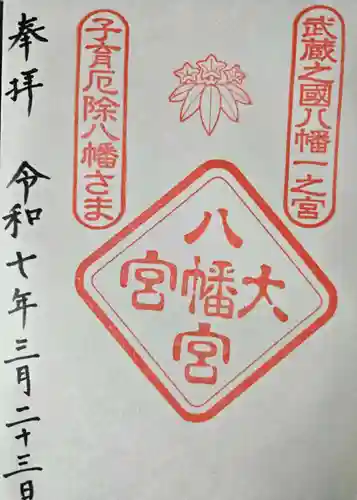 武蔵之國八幡一之宮
大
八幡宮
宮
子育厄除八幡さま
奉拝　令和七年三月二十三日